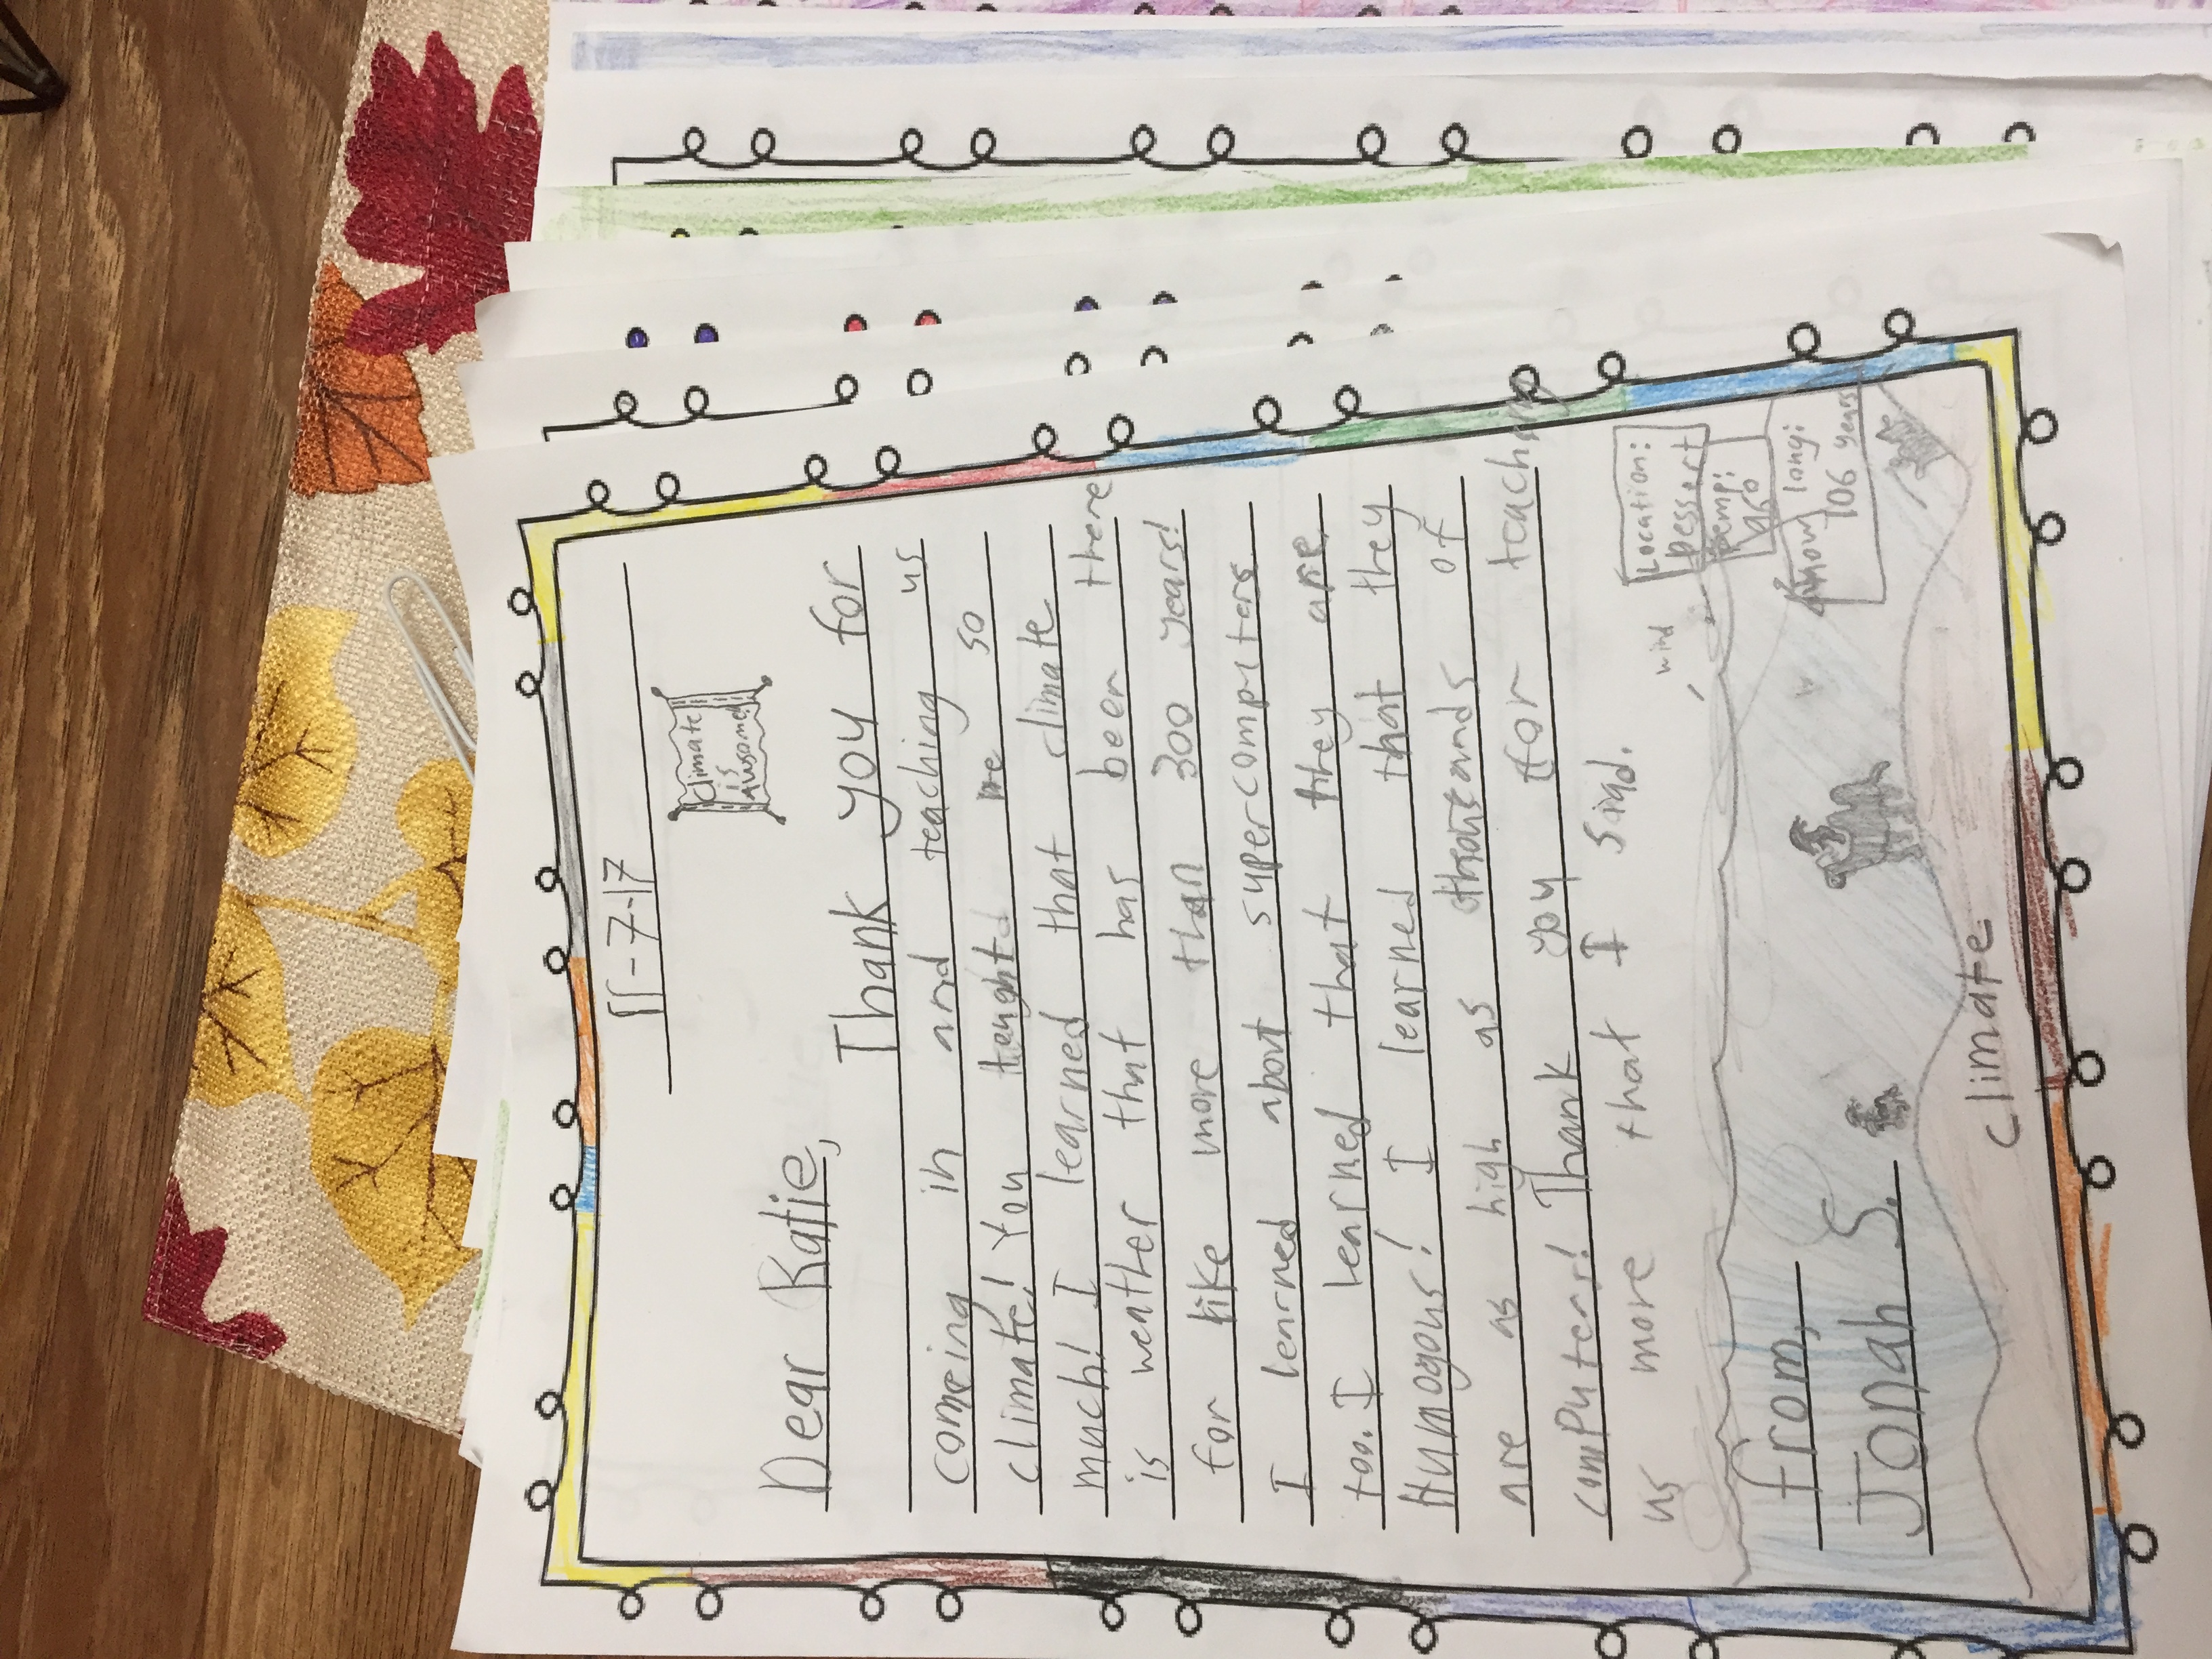 11-7-17
climate
is
Awsome!
Dear Katie,
Thank you for
comeing in and teaching us
climate! You tought me so
much! I learned that climate
is weather that has been there
for like more than 300 years!
I learned about supercomputers
too. I learned that they are
Humogous! I learned that they
are as high as thousands of
computers! Thank you for teaching
us more that I siad.
wind
Location:
Dessert
Temp:
96°
How long:
106 years
from,
Jonah S.
climate